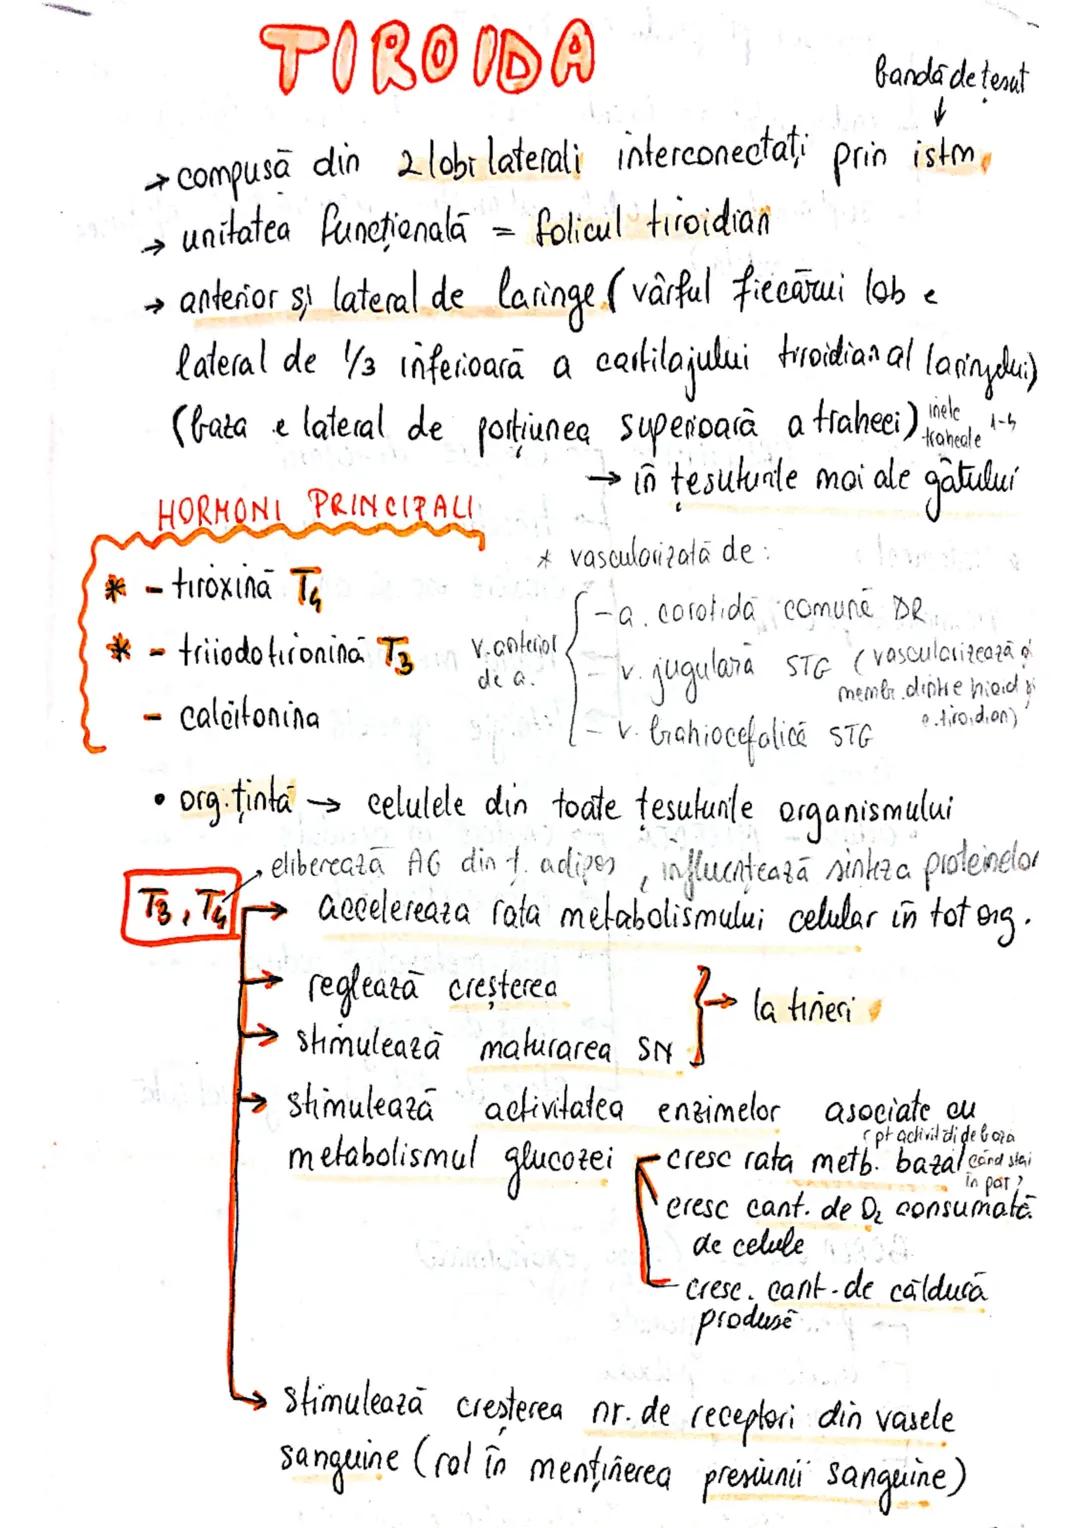 TIROIDA
bandă de țesut
→ compusă din 2 lobi laterali interconectați prin istm
→ unitatea funcțională = folicul tiroidian
→ anterior și lateral de laringe (vârful fiecărui lob e
lateral de 1/3 inferioară a cartilajului tiroidian al laringelui)
(baza e lateral de porțiunea superioară a traheei) inele traheale 1-4
→ în țesuturile moi ale gâtului
HORMONI PRINCIPALI
* - tiroxină T4
* - triiodotironină T3
- calcitonina
* vascularizată de:
v. anterior de a.
- a. carotidă comună DR
- v. jugulară STG (vascularizează și
membr. dintre hioid și
c. tiroidian)
- v. brahiocefalică STG
• org. țintă → celulele din toate țesuturile organismului
T3, T4
eliberează AG din ț. adipos, influențează sinteza proteinelor
→ accelereaza rata metabolismului celular în tot org.
→ reglează creșterea
→ stimulează maturarea SN
→ la tineri
→ stimulează activitatea enzimelor asociate cu
metabolismul glucozei
(pt activități de baza
cresc rata metb. bazal când stai
în pat)
cresc cant. de O2 consumată
de celule
cresc. cant. de căldură
produsă
→ stimulează creșterea nr. de receptori din vasele
sanguine (rol în menținerea presiunii sanguine)